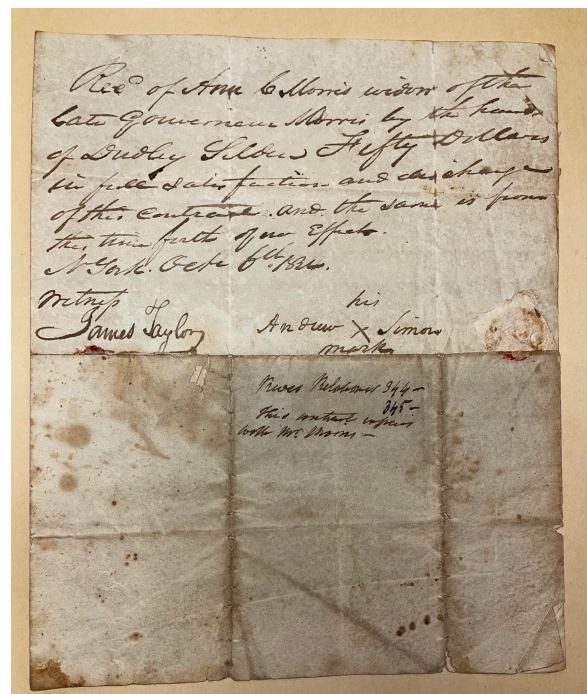 Recd of Ann C Morris widow of the
late Gouverneur Morris by the hands
of Dudley Selden Fifty Dollars
in full satisfaction and discharge
of this contract and the same is from
this time forth of no Effect.
N York. Octr 6th
Witness
James Taylor
his
Andrew X Simon
mark
344 -
345 -
this contract
with Mrs Morris -